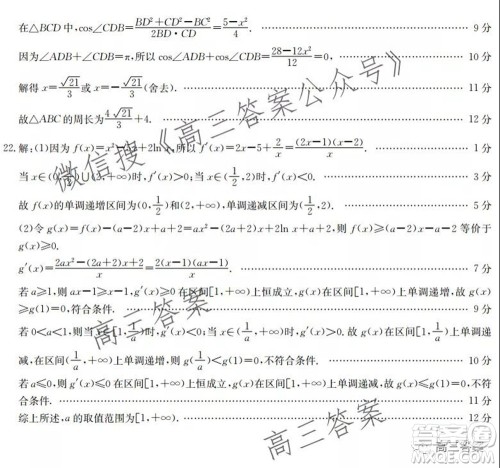 在△BCD中,cos∠CDB=\frac{BD²+CD²-BC²}{2BD·CD}=\frac{5-x²}{4}. 9分
因为∠ADB+∠CDB=π,所以cos∠ADB+cos∠CDB=\frac{28-12x²}{12}=0, 10分
解得x=\frac{\sqrt{21}}{3}或x=-\frac{\sqrt{21}}{3}(舍去). 11分
故△ABC的周长为\frac{4\sqrt{21}}{3}+4. 12分
22.解:(1)因为f(x)=x² 2ln x,所以f′(x)=2x-5+\frac{2}{x}=\frac{(2x-1)(x-2)}{x}. 1分
当x∈(0,\frac{1}{2})∪(2,+∞)时,f′(x)>0;当x∈(\frac{1}{2},2)时,f′(x)<0. 3分
故f(x)的单调递增区间为(0,\frac{1}{2})和(2,+∞),单调递减区间为(\frac{1}{2},2). 5分
(2)令g(x)=f(x)-(a-2)x+a+2=ax²-(2a+2)x+2ln x+a+2,则f(x)≥(a-2)x-a-2等价于
g(x)≥0.
g′(x)=\frac{2ax²-(2a+2)x+2}{x}=\frac{2(x-1)(ax-1)}{x}. 7分
若a≥1,则ax-1≥x-1,g′(x)≥0在区间[1,+∞)上恒成立,g(x)在区间[1,+∞)上单调递增,故g(x)
≥g(1)=0,符合条件. 9分
若0<a<1,则当 \frac{1}{a})时,g′(x)<0;当x∈(\frac{1}{a},+∞)时,g′(x)>0.故g(x)在区间[1,\frac{1}{a})上单调递
减,在区间(\frac{1}{a},+∞)上单调递增,g(\frac{1}{a})<g(1)=0,不符合条件. 10分
若a≤0,则g′(x)≤0在区间[1,+∞)上恒成立,g(x)在区间[1,+∞)上单调递减,故g(x)≤g(1)=0,不符合
条件. 11分
综上所述,a的取值范围为[1,+∞). 12分
微信搜《高三答案公众号》
高三答案
高三答案
高三答案